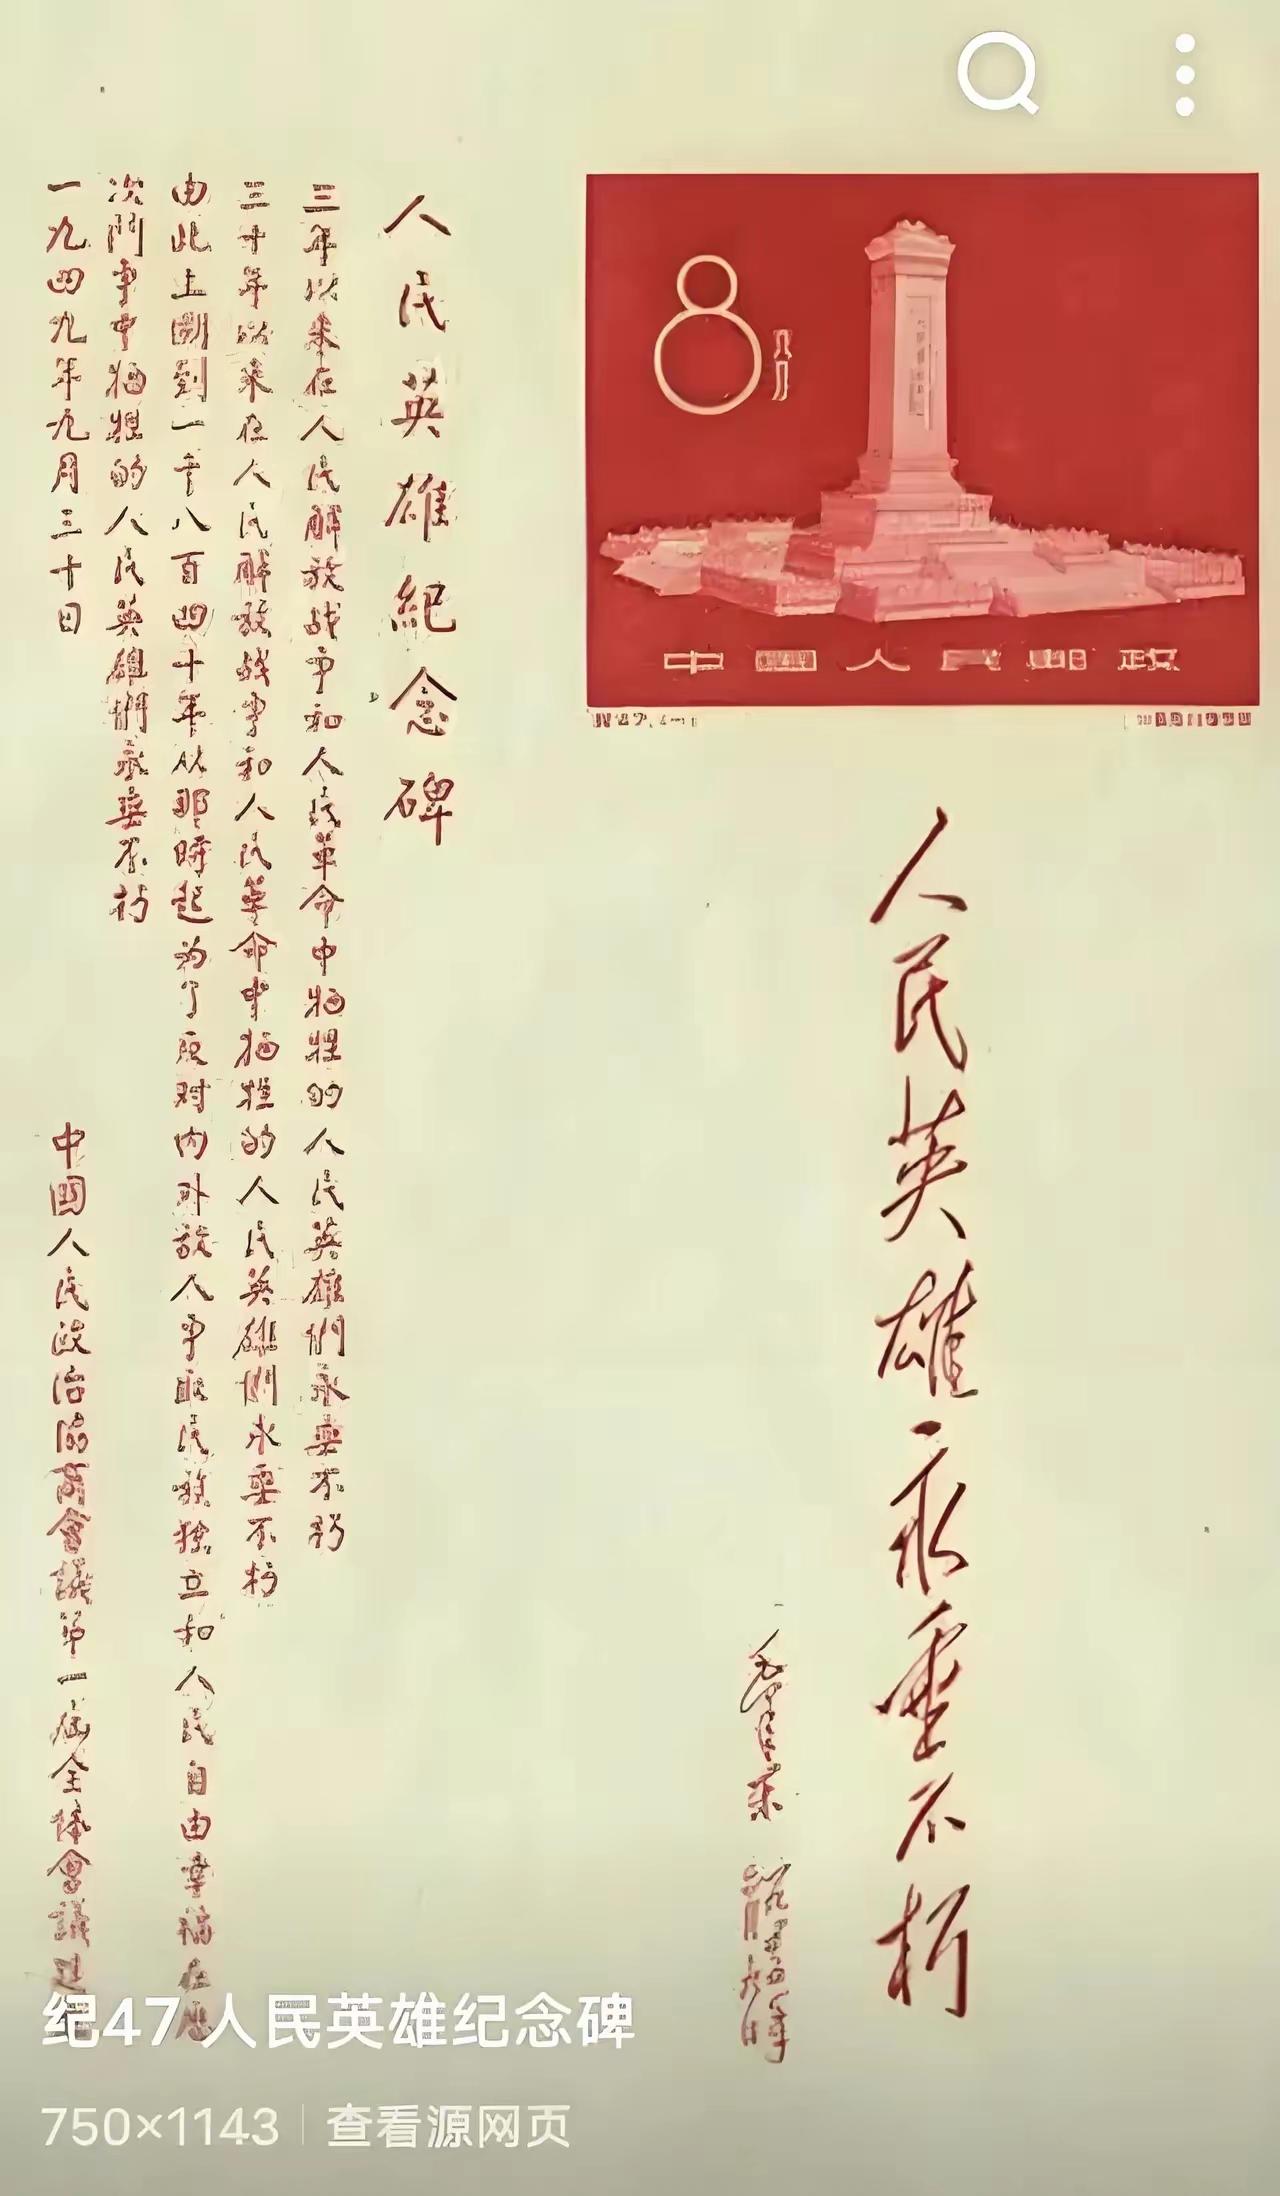 8分
中国人民邮政
人民英雄永垂不朽
人民英雄紀念碑
三年以来在人民解放战争和人民革命中牺牲的人民英雄們永垂不朽
三十年以来在人民解放战争和人民革命中牺牲的人民英雄們永垂不朽
由此上溯到一千八百四十年从那時起为了反对内外敌人争取民族独立和人民自由幸福在历
次鬥争中牺牲的人民英雄們永垂不朽
一九四九年九月三十日
中國人民政治協商會議第一屆全体會議建
纪47 人民英雄纪念碑
750×1143
查看源网页